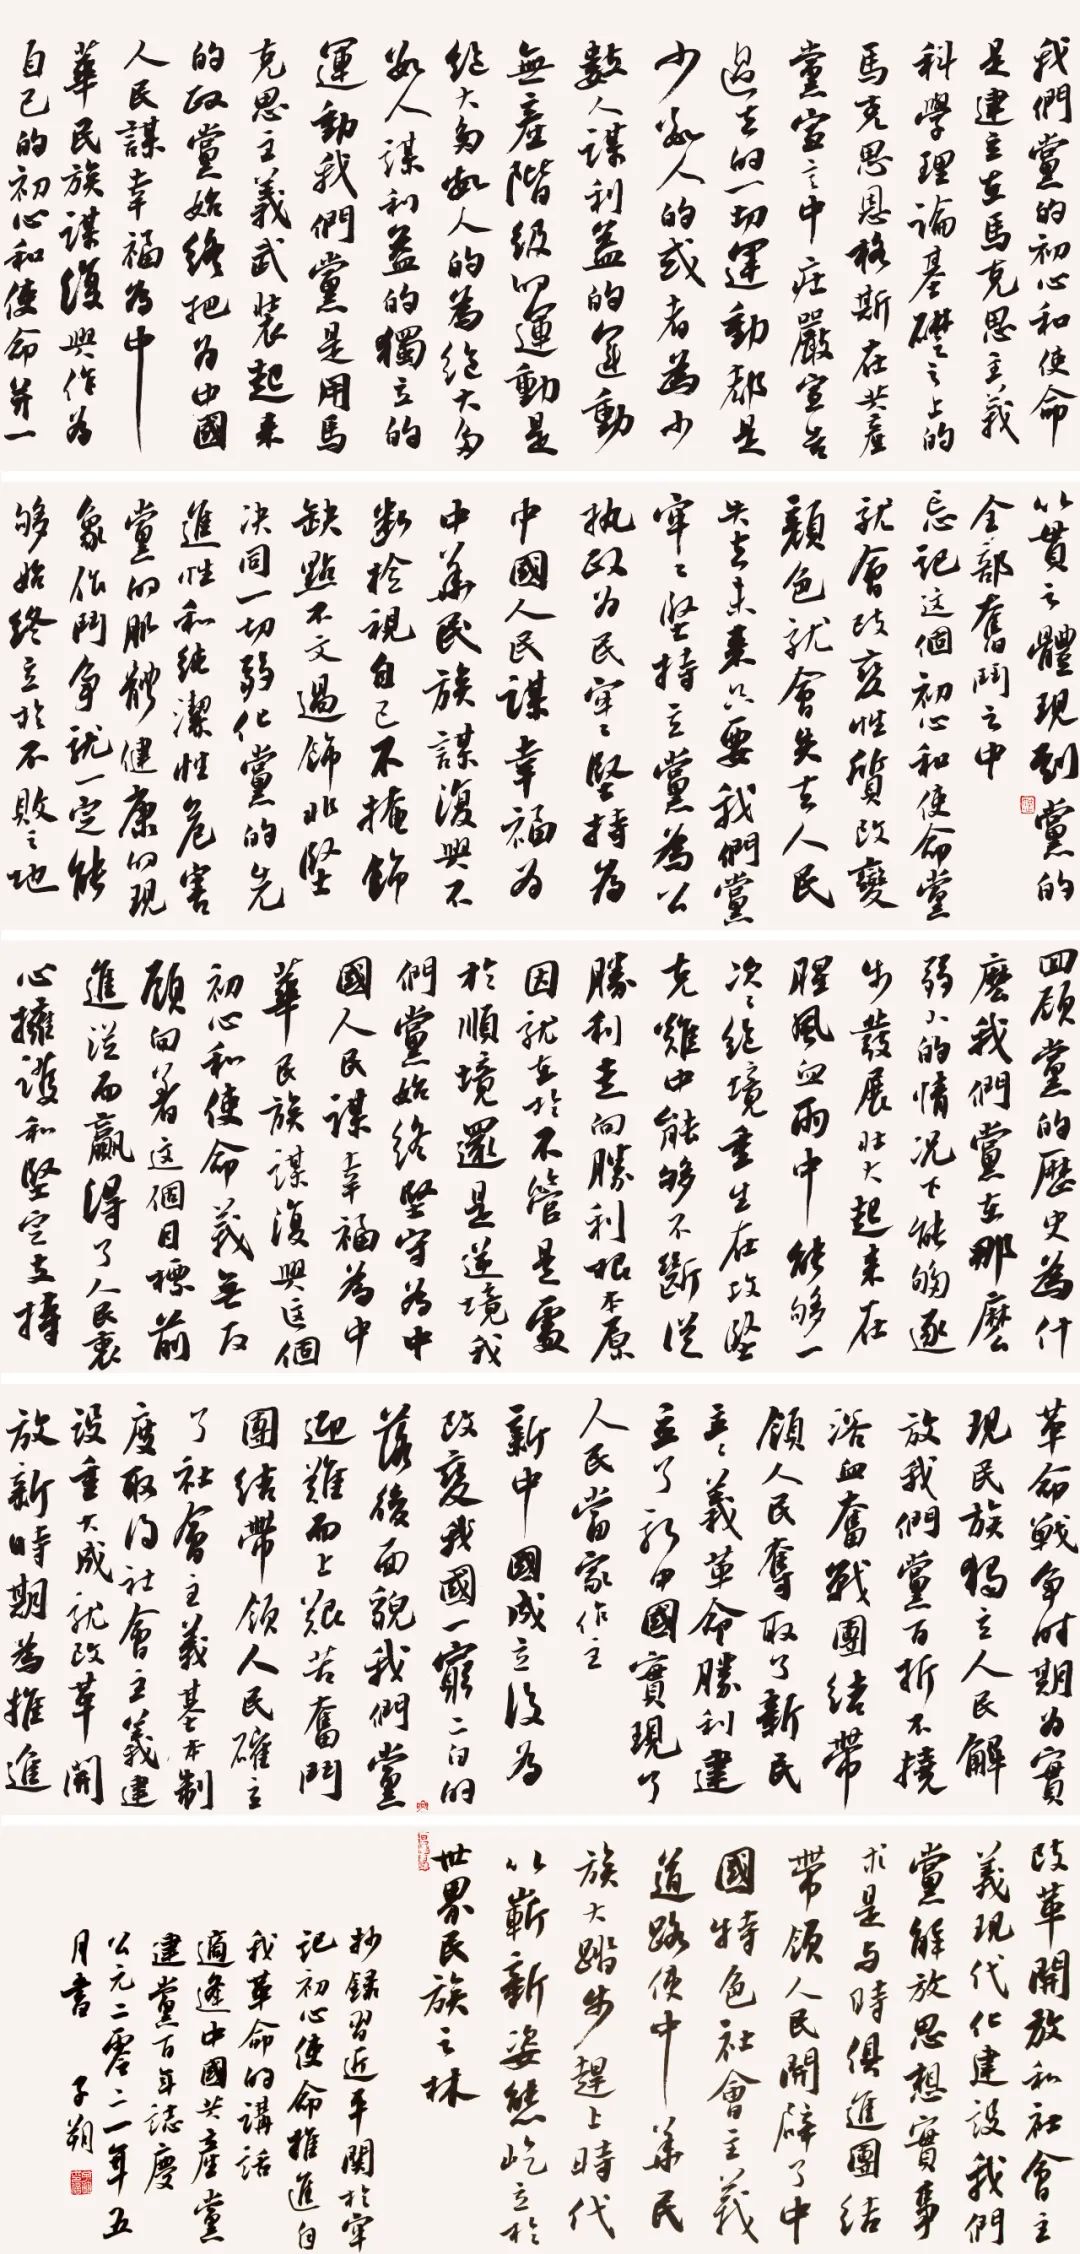 我們黨的初心和使命
是建立在馬克思主義
科學理論基礎之上的
馬克思恩格斯在共產
黨宣言中庄嚴宣告
過去的一切運動都是
少數人的或者為少
數人謀利益的運動
無產階級的運動是
絕大多數人的為絕大多
數人謀利益的獨立的
運動我們黨是用馬
克思主義武裝起來
的政黨始終把为中國
人民謀幸福為中
華民族謀復興作为
自己的初心和使命并一
以貫之體現到黨的
全部奮鬥之中
忘記这個初心和使命黨
就會改变性質改變
顏色就會失去人民
失去未來只要我們黨
牢牢堅持立黨為公
执政为民牢牢堅持為
中國人民謀幸福为
中華民族謀復興不
斷检視自己不掩飾
缺點不文過飾非堅
决同一切弱化黨的先
進性和純潔性危害
黨的肌體健康的現
象作鬥争就一定能
够始终立於不敗之地
回顾黨的歷史為什
麽我們黨在那麽
弱小的情况下能夠逐
步發展壯大起來在
腥風血雨中能够一
次次絕境重生在攻堅
克難中能够不斷從
勝利走向勝利根本原
因就在於不管是處
於順境還是逆境我
們黨始终堅守為中
國人民謀幸福為中
華民族謀復興这個
初心和使命義無反
顧向着这個目標前
進從而贏得了人民衷
心擁護和堅定支持
革命戰争时期为實
現民族獨立人民解
放我們黨百折不撓
浴血奮戰團结帶
領人民奪取了新民
主主義革命勝利建
立了新中國實現了
人民當家作主
新中國成立後为
改變我國一窮二白的
落後面貌我們黨
迎難而上艱苦奮鬥
團结帶領人民確立
了社會主義基本制
度取得社會主義建
设重大成就改革開
放新時期為推進
改革開放和社會主
義現代化建設我們
黨解放思想實事
求是与時俱進團结
帶領人民開闢了中
國特色社會主義
道路使中華民
族大踏步趕上時代
以嶄新姿態屹立於
世界民族之林
抄録習近平關於牢
記初心使命推進自
我革命的講話
適逢中國共產黨
建黨百年誌慶
公元二零二一年五
月書 子朔